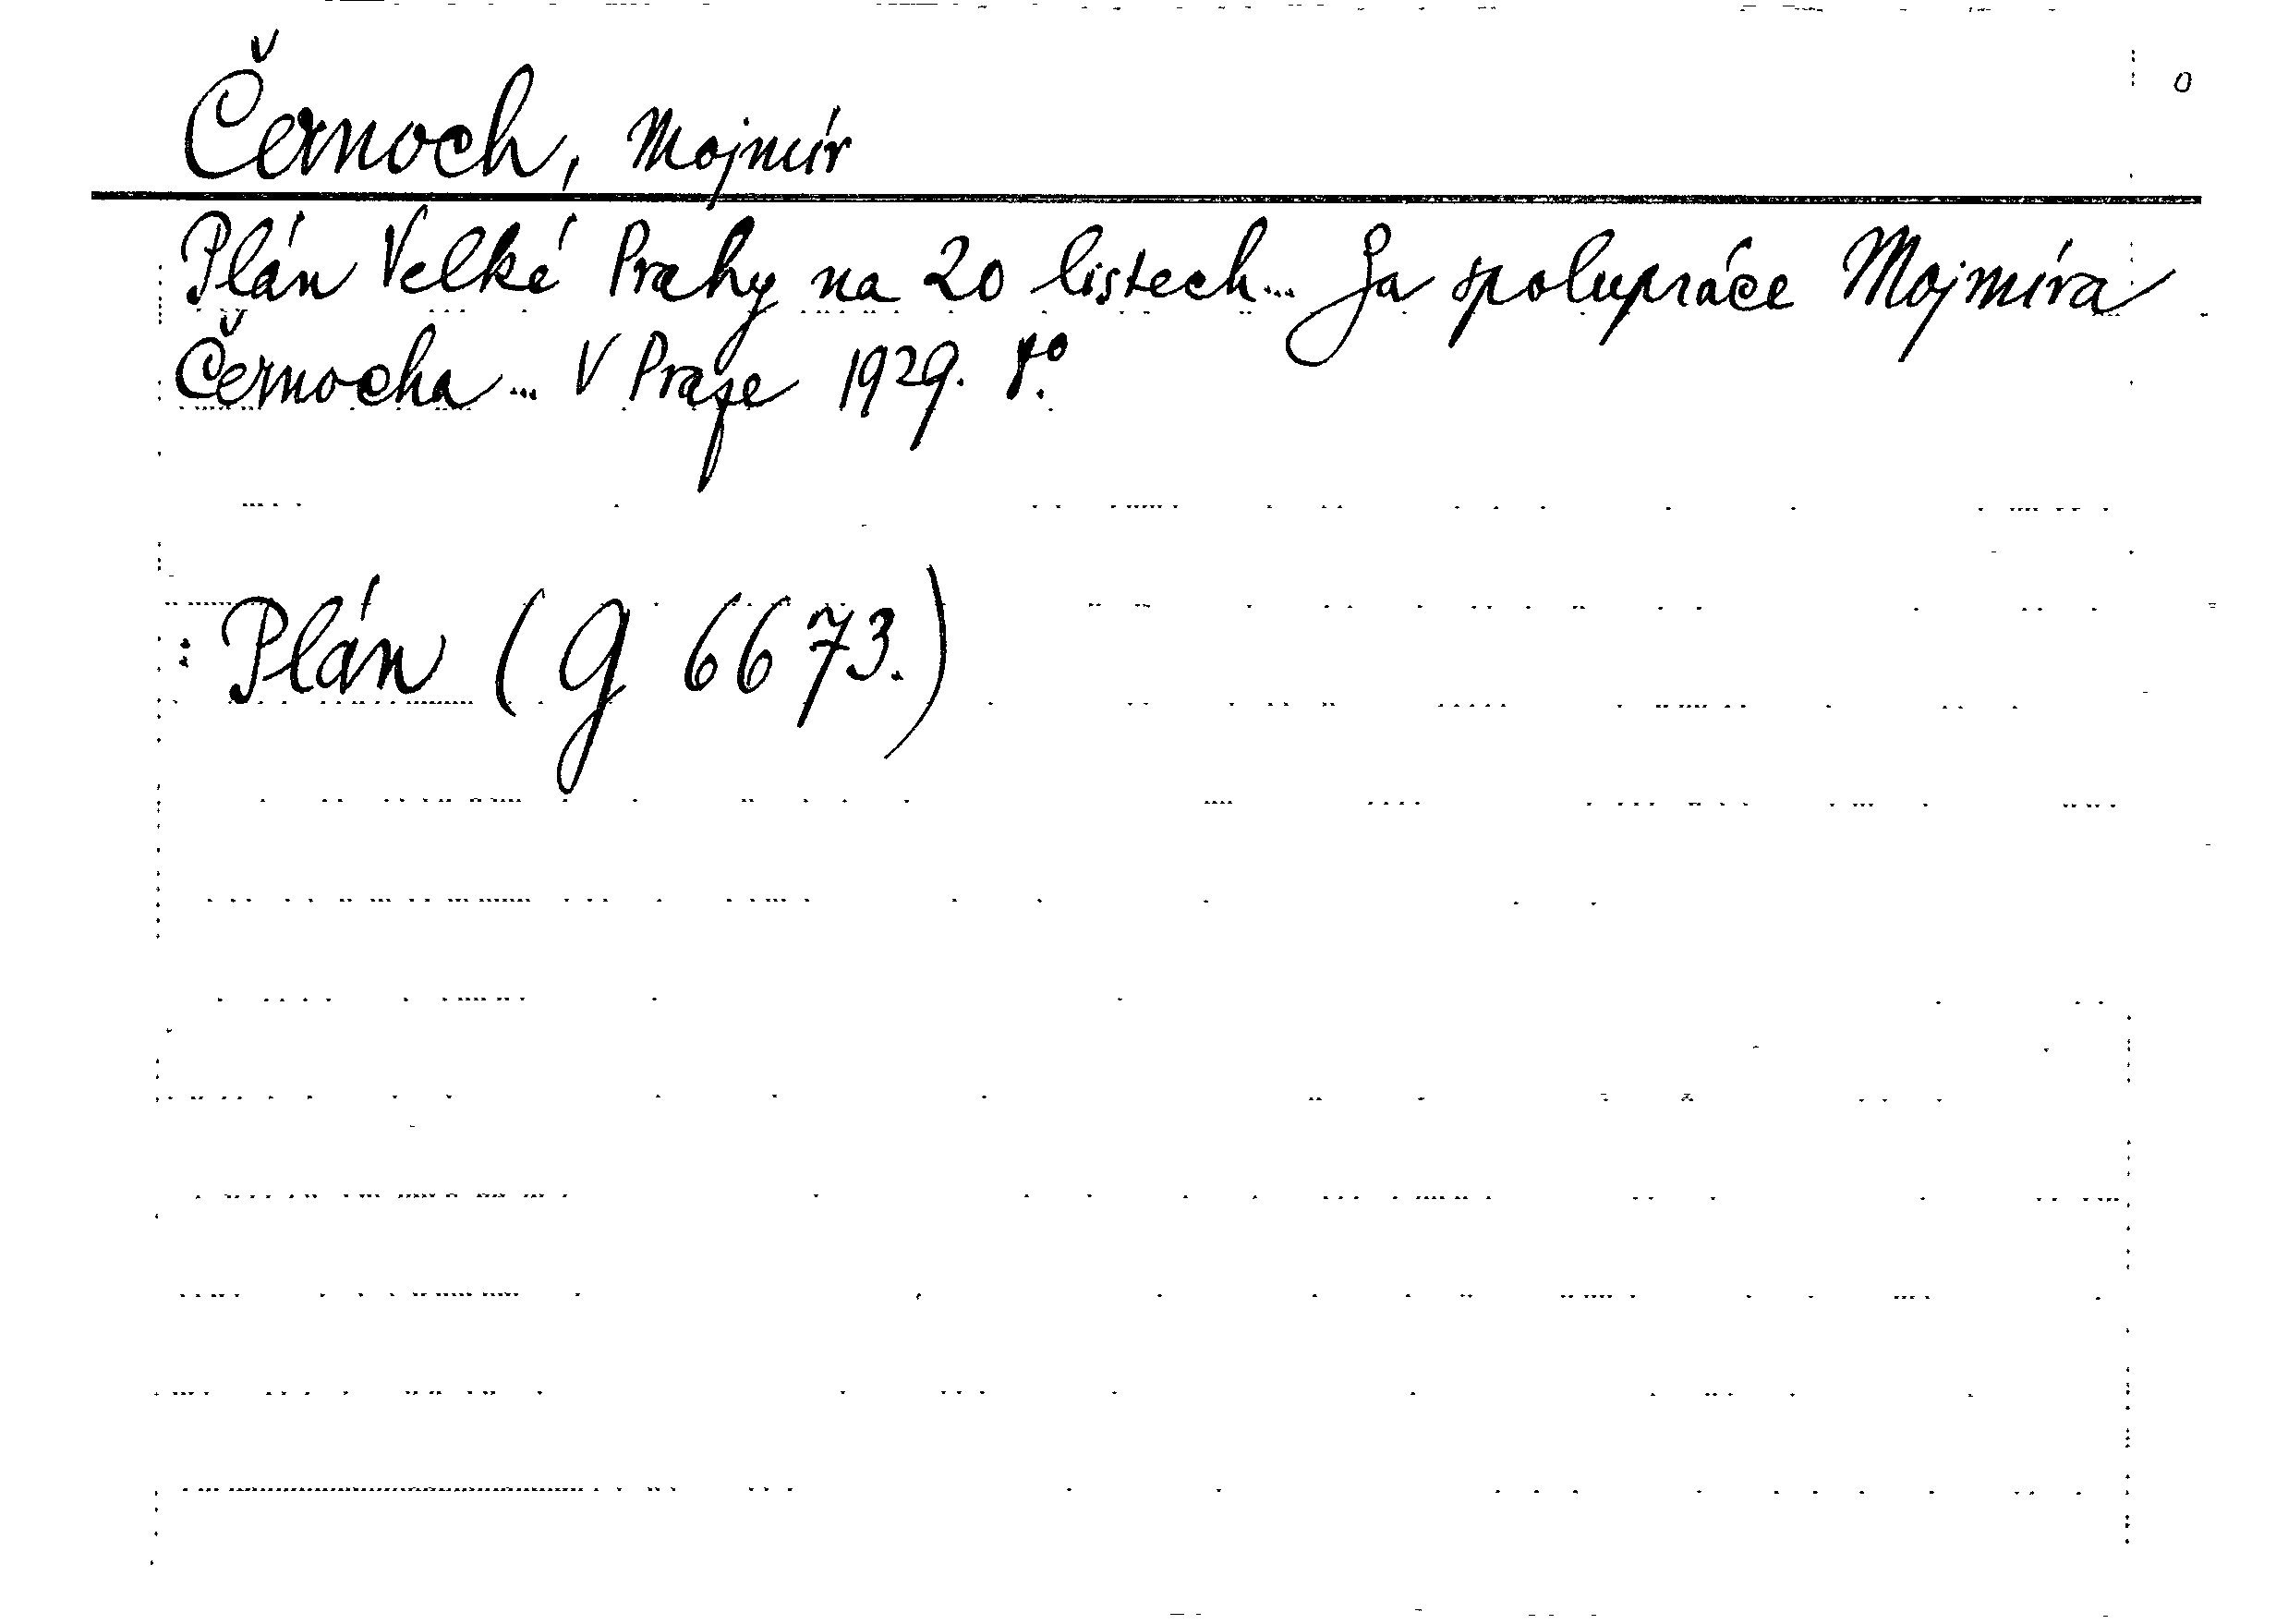 Černoch, Mojmír
o
Plán Velké Prahy na 20 listech... Za spolupráce Mojmíra
Černocha... V Praze 1929. 8.°
: Plán (G 6673.)